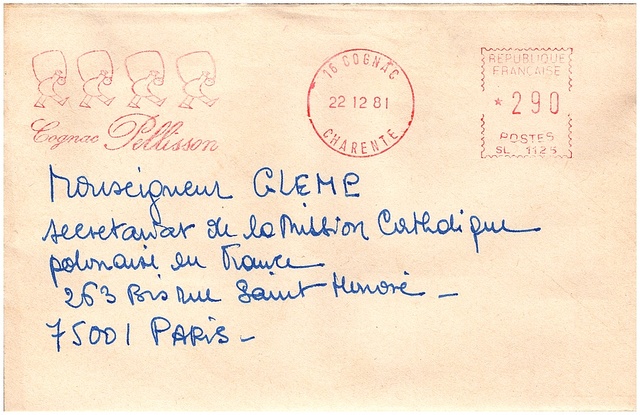 Cognac Pellisson
16 COGNAC
22 12 81
CHARENTE
REPUBLIQUE
FRANCAISE
* 290
POSTES
SL 1125
Monseigneur GLEMP
secretariat de la Mission Catholique
polonaise en France
263 Bis rue Saint Honoré -
75001 PARIS -